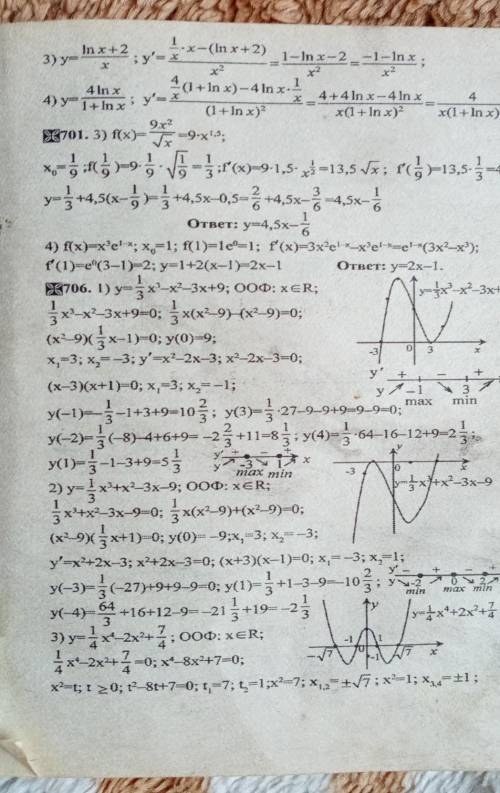 3) y=(ln x+2)/x ; y′=(1/x·x–(ln x+2))/x²=(1–ln x–2)/x²=(–1–ln x)/x² ;
4) y=4 ln x/(1+ln x) ; y′=(4/x(1+ln x)–4 ln x·1/x)/(1+ln x)²=(4+4 ln x–4 ln x)/(x(1+ln x)²)=4/(x(1+ln x
701. 3) f(x)=9x²/√x=9·x^1,5;
x₀=1/9 ;f(1/9)=9·1/9·√(1/9)=1/3 ;f′(x)=9·1,5·x^(1/2)=13,5 √x ; f′(1/9)=13,5·1/3=4
y=1/3+4,5(x–1/9)=1/3+4,5x–0,5=2/6+4,5x–3/6=4,5x–1/6
Ответ: y=4,5x–1/6
4) f(x)=x³e^(1–x); x₀=1; f(1)=1e⁰=1; f′(x)=3x²e^(1–x)–x³e^(1–x)=e^(1–x)(3x²–x³);
f′(1)=e⁰(3–1)=2; y=1+2(x–1)=2x–1 Ответ: y=2x–1.
706. 1) y=1/3x³–x²–3x+9; ООФ: x∈R;
y=1/3x³–x²–3x+
1/3x³–x²–3x+9=0; 1/3x(x²–9)–(x²–9)=0;
(x²–9)(1/3x–1)=0; y(0)=9;
-3 0 3 x
x₁=3; x₂= –3; y′=x²–2x–3; x²–2x–3=0;
y′ + – +
(x–3)(x+1)=0; x₁=3; x₂= –1;
y –1 3
max min
y(–1)=–1/3–1+3+9=10 2/3 ; y(3)=1/3·27–9–9+9=9–9=0;
y(–2)=1/3(–8)–4+6+9= –2 2/3+11=8 1/3 ; y(4)=1/3·64–16–12+9=2 1/3 ;
y(1)=1/3–1–3+9=5 1/3
y′ + – + x
y –3 1
max min
y
-3 0 x
y=1/3x³+x²–3x–9
2) y=1/3x³+x²–3x–9; ООФ: x∈R;
1/3x³+x²–3x–9=0; 1/3x(x²–9)+(x²–9)=0;
(x²–9)(1/3x+1)=0; y(0)= –9;x₁=3; x₂= –3;
y′=x²+2x–3; x²+2x–3=0; (x+3)(x–1)=0; x₁= –3; x₂=1;
y(–3)=1/3(–27)+9+9–9=0; y(1)=1/3+1–3–9=–10 2/3 ;
y′ – + – +
y –2 0 2
min max min
y(–4)=–64/3+16+12–9= –21 1/3+19= –2 1/3
3) y=1/4x⁴–2x²+7/4 ; ООФ: x∈R;
y
y=1/4x⁴+2x²+7/4
–√7 -1 0 1 -1 √7 x
1/4x⁴–2x²+7/4=0; x⁴–8x²+7=0;
x²=t; t ≥0; t²–8t+7=0; t₁=7; t₂=1;x²=7; x₁,₂=±√7 ; x²=1; x₃,₄=±1 ;